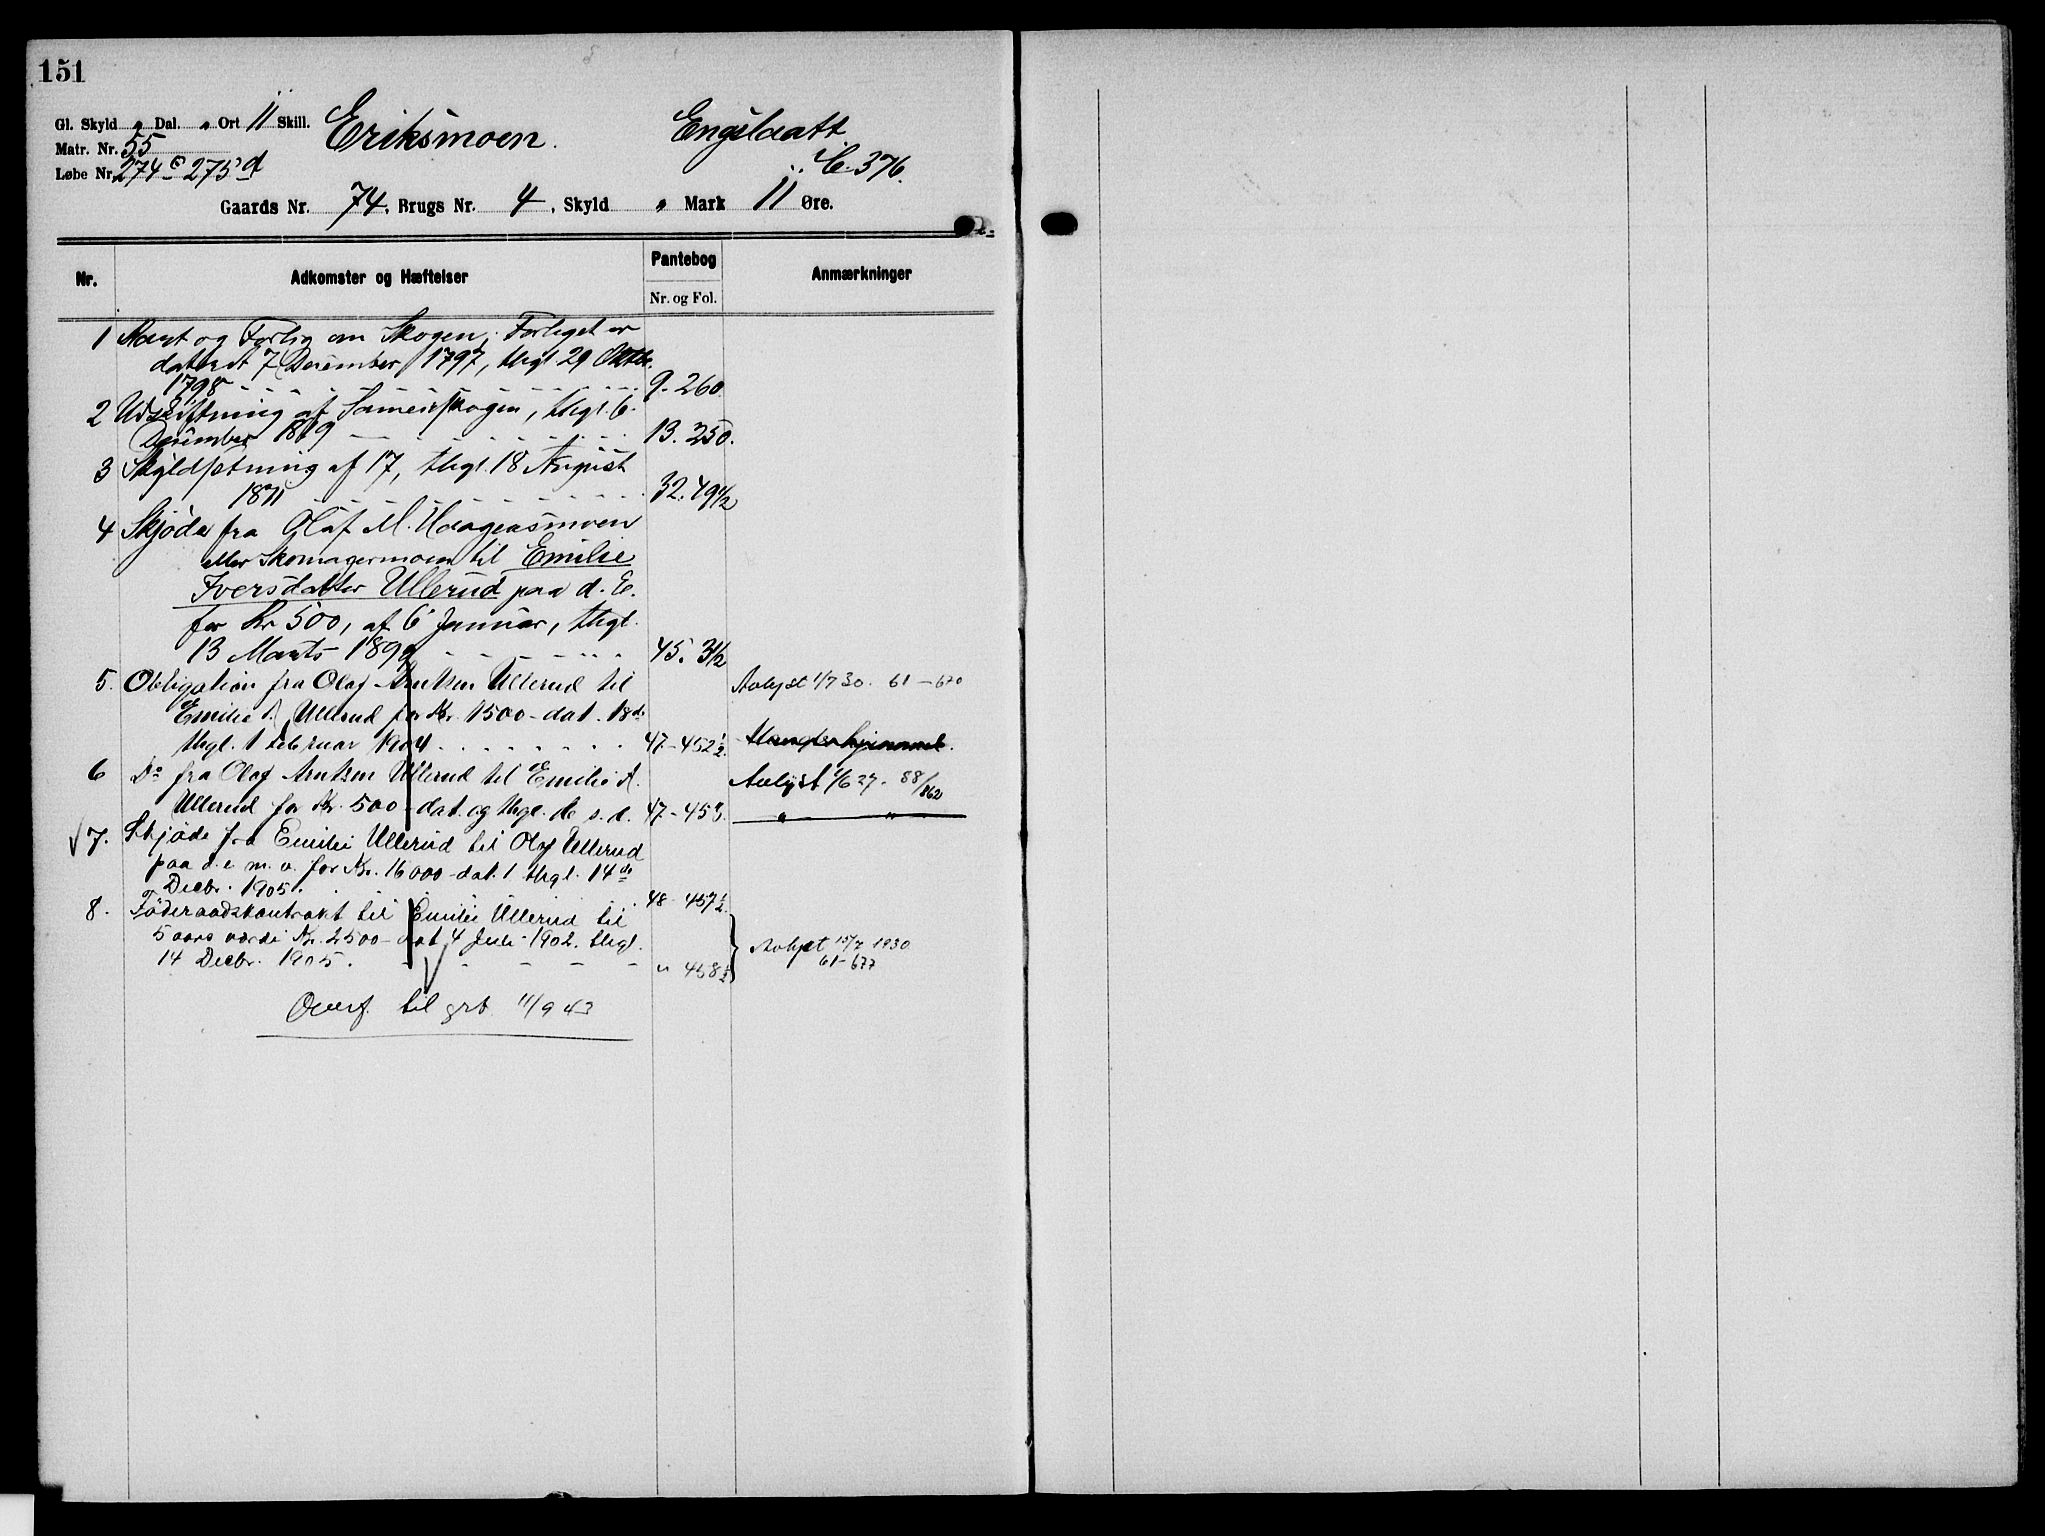 151
Gl. Skyld " Dal. " Ort 11 Skill.
Eriksmoen.
Engslaatt.
Matr. Nr. 55
C. 376.
Løbe Nr. 274c 275d
Gaards Nr. 74, Brugs Nr. 4, Skyld " Mark 11 Øre.
Nr.
Adkomster og Hæftelser
Pantebog
Nr. og Fol.
Anmærkninger
1 og Forlig om Skogen; Forliget er
dateret 7 December 1797, thgl. 29 Oktbr.
1798 9. 260.
2 Udskiftning af Sameieskogen, thgl. 6.
December 1819 13. 250.
3 Skyldsetning af 17, thgl. 18 August
1871 32. 491/2
4 Skjøde fra Olaf M. Haagensmoen
eller Skomagermoen til Emilie
Iversdatter Ullerud paa d. E.
for Kr 500, af 6 Januar, thgl.
13 Marts 1899 45. 31/2
5. Obligation fra Olaf Arntsen Ullerud til Avlyst 1/7 30. 61-670
Emilie Ullerud for Kr. 1500 - dat. 18de
thgl. 1 Februar 1904 47-452 1/2.
6 Do fra Olaf Arntsen Ullerud til Emilie A. Avlyst 1/6 27. 58/862
Ullerud for Kr. 500 - dat. og thgl. de s. d. 47-453. " "
7. Skjøde fra Emilie Ullerud til Olaf Ullerud
paa d. e. m. v. for Kr. 16000 - dat. 1 thgl. 14de
Decbr. 1905. 48-457 1/2.
8. Føderaadskontrakt til Emilie Ullerud til
5 aars værdi Kr. 2500 - dat 4 Juli 1902. thgl. Avlyst 15/7 1930
14 Decbr. 1905. " 458 1/2 61-677
Overf. til grb. 11/9 43